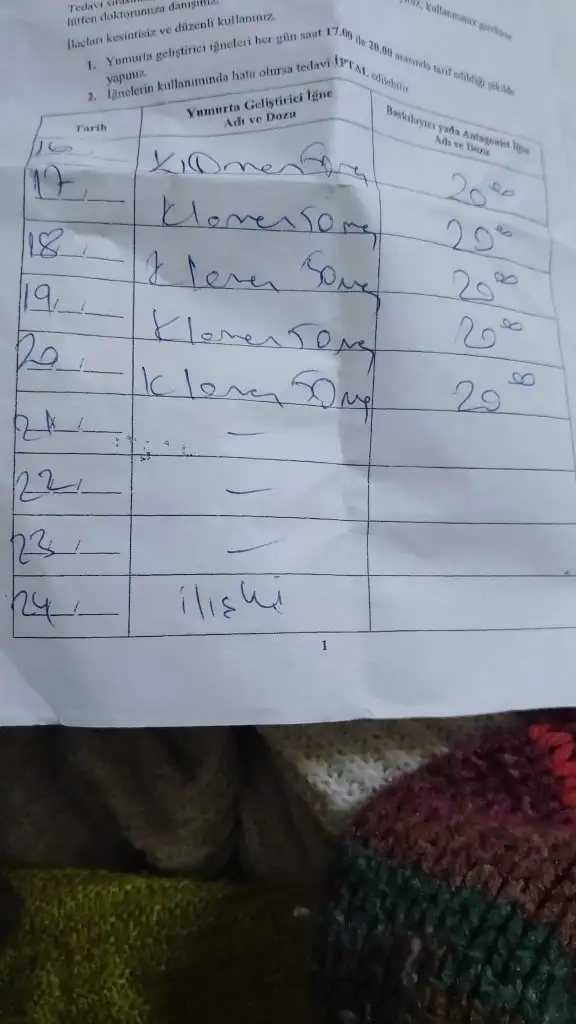 Tedavi
lütfen doktorunuza danışınız.
kullanmanız gerekirse
İlaçları kesintisiz ve düzenli kullanınız.
1. Yumurta geliştirici iğneleri her gün saat 17.00 ile 20.00 arasında tarif edildiği şekilde
yapınız.
2. İğnelerin kullanımında hata olursa tedavi İPTAL edilebilir.
Tarih Yumurta Geliştirici İğne Adı ve Dozu Baskılayıcı yada Antagonist İğne Adı ve Dozu
16 Klomen 50mg 20 00
17 / Klomen 50 mg 20 00
18 / Klomen 50mg 20 00
19 / Klomen 50 mg 20 00
20 / Klomen 50 mg 20 00
21 / —
22 / —
23 / —
24 / ilişki
1